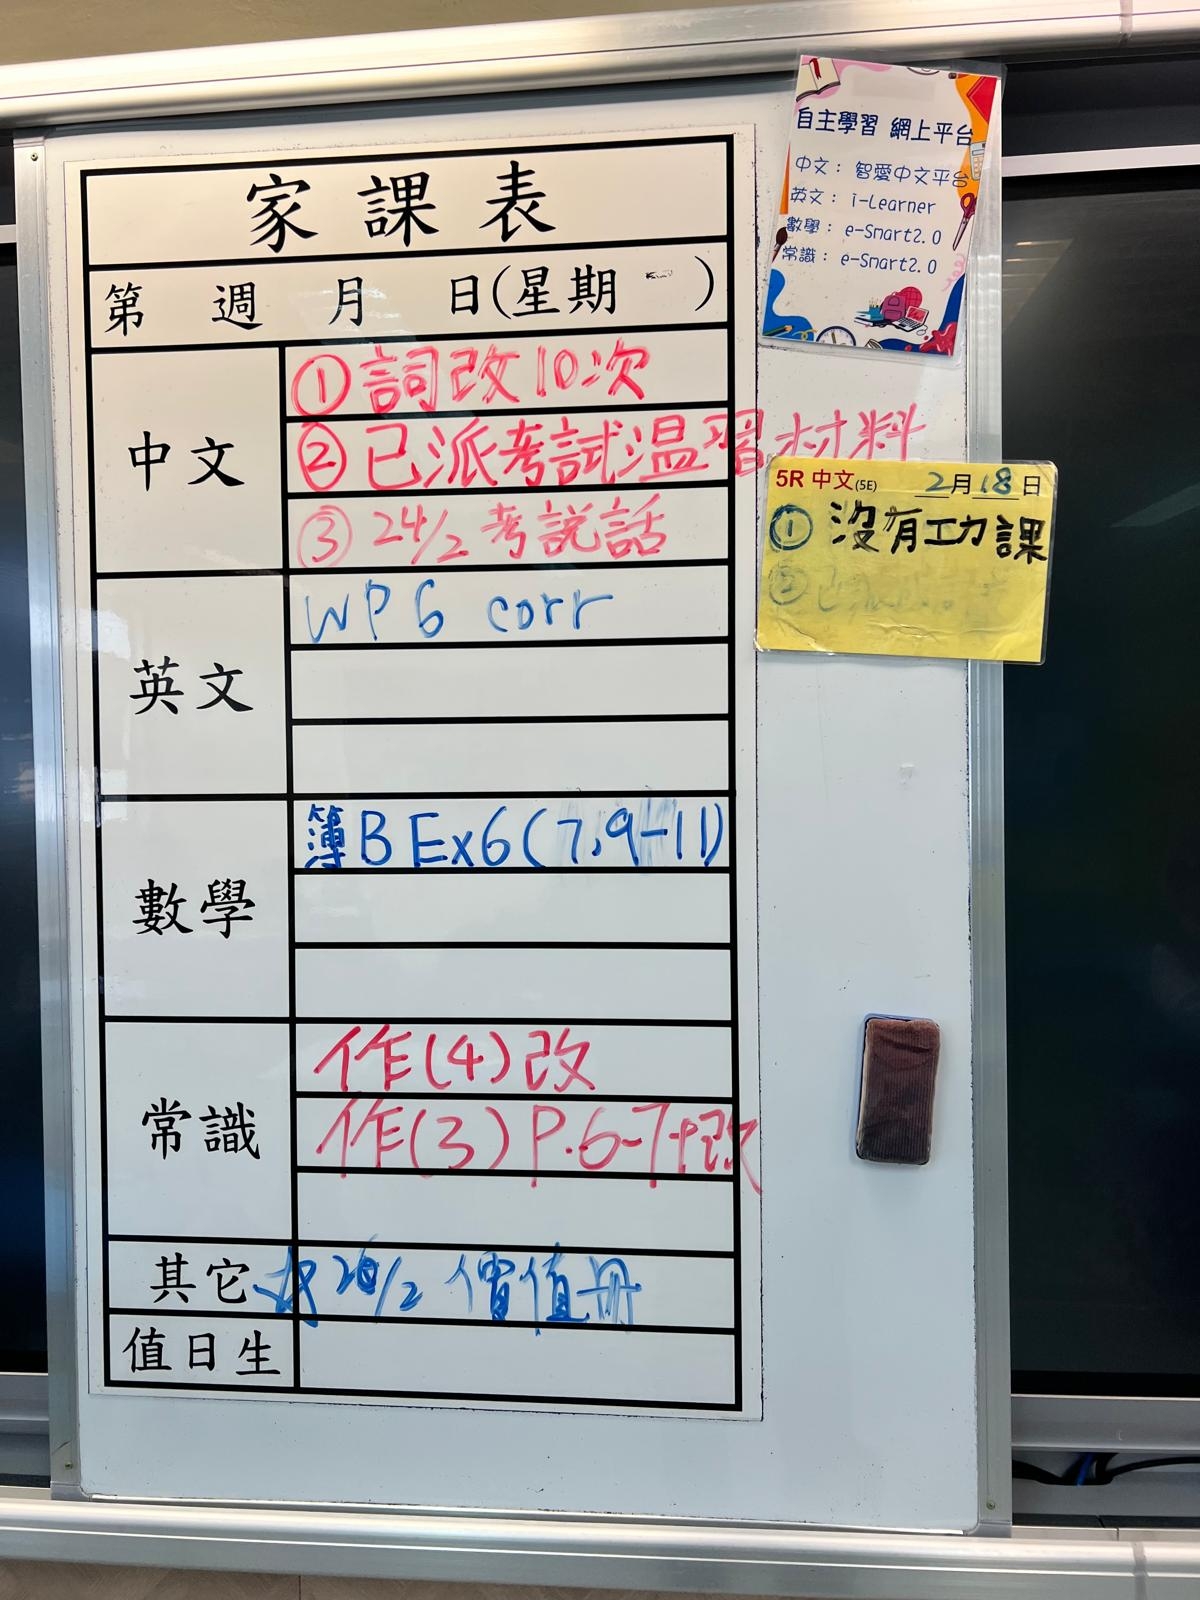 家課表
第 週 月 日(星期 一 )
中文
①詞改10次
②已派考試温習材料
③24/2考說話
英文
WP6 corr
數學
簿B Ex6(7,9-11)
常識
作(4)改
作(3)P.6-7+改
其它
26/2 價值冊
值日生
自主學習 網上平台
中文：智愛中文平台
英文：i-Learner
數學：e-Smart2.0
常識：e-Smart2.0
5R 中文(5E) 2月18日
①沒有功課
②已